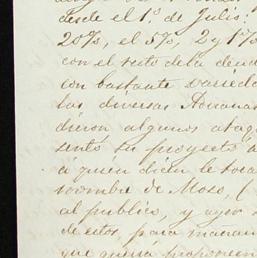 desde el 1º de Julio:
20%, el 5%, 2 y 1%
con el resto de la deud
con bastante varieda
Las diversas Aduanas
dieron algunos ataq
sentó su proyecto a
á quién dicen le toca
nombre de Moso, (
al publico, y ayer
de estos, para
que quiza proponen